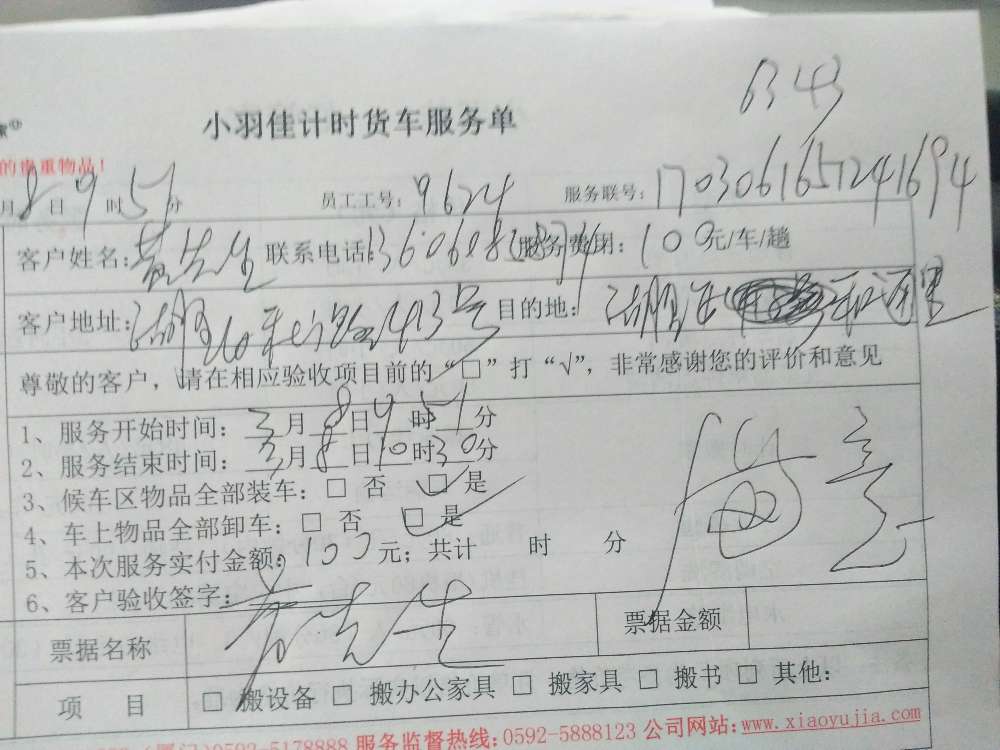 6343
小羽佳计时货车服务单
的贵重物品！
月8日9时51分 员工工号：9624 服务联号：17030616571241694
客户姓名：黄先生 联系电话：1360608 服务费用：100元/车/趟
客户地址：湖 43号 目的地：湖 和通里
尊敬的客户，请在相应验收项目前的“□”打“√”，非常感谢您的评价和意见
1、服务开始时间：三月8日9时51分
2、服务结束时间：三月8日10时30分
3、候车区物品全部装车：□ 否 □ 是
4、车上物品全部卸车：□ 否 □ 是
5、本次服务实付金额：100元；共计 时 分
满意
6、客户验收签字：黄先生
票据名称 票据金额
项 目 □ 搬设备 □ 搬办公家具 □ 搬家具 □ 搬书 □ 其他：
0592-5178888 服务监督热线：0592-5888123 公司网站：www.xiaoyujia.com